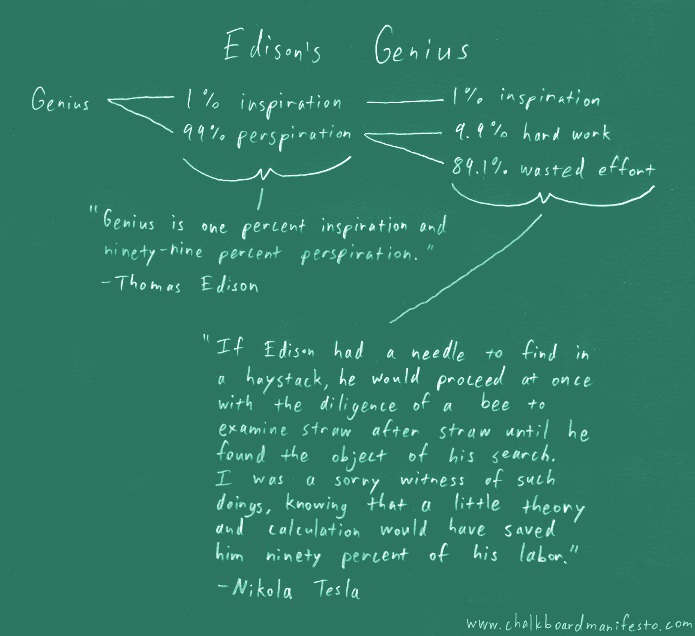 Edison's Genius
Genius
1% inspiration
99% perspiration
1% inspiration
9.9% hard work
89.1% wasted effort
"Genius is one percent inspiration and
ninety-nine percent perspiration."
-Thomas Edison
"If Edison had a needle to find in
a haystack, he would proceed at once
with the diligence of a bee to
examine straw after straw until he
found the object of his search.
I was a sorry witness of such
doings, knowing that a little theory
and calculation would have saved
him ninety percent of his labor."
-Nikola Tesla
www.chalkboardmanifesto.com